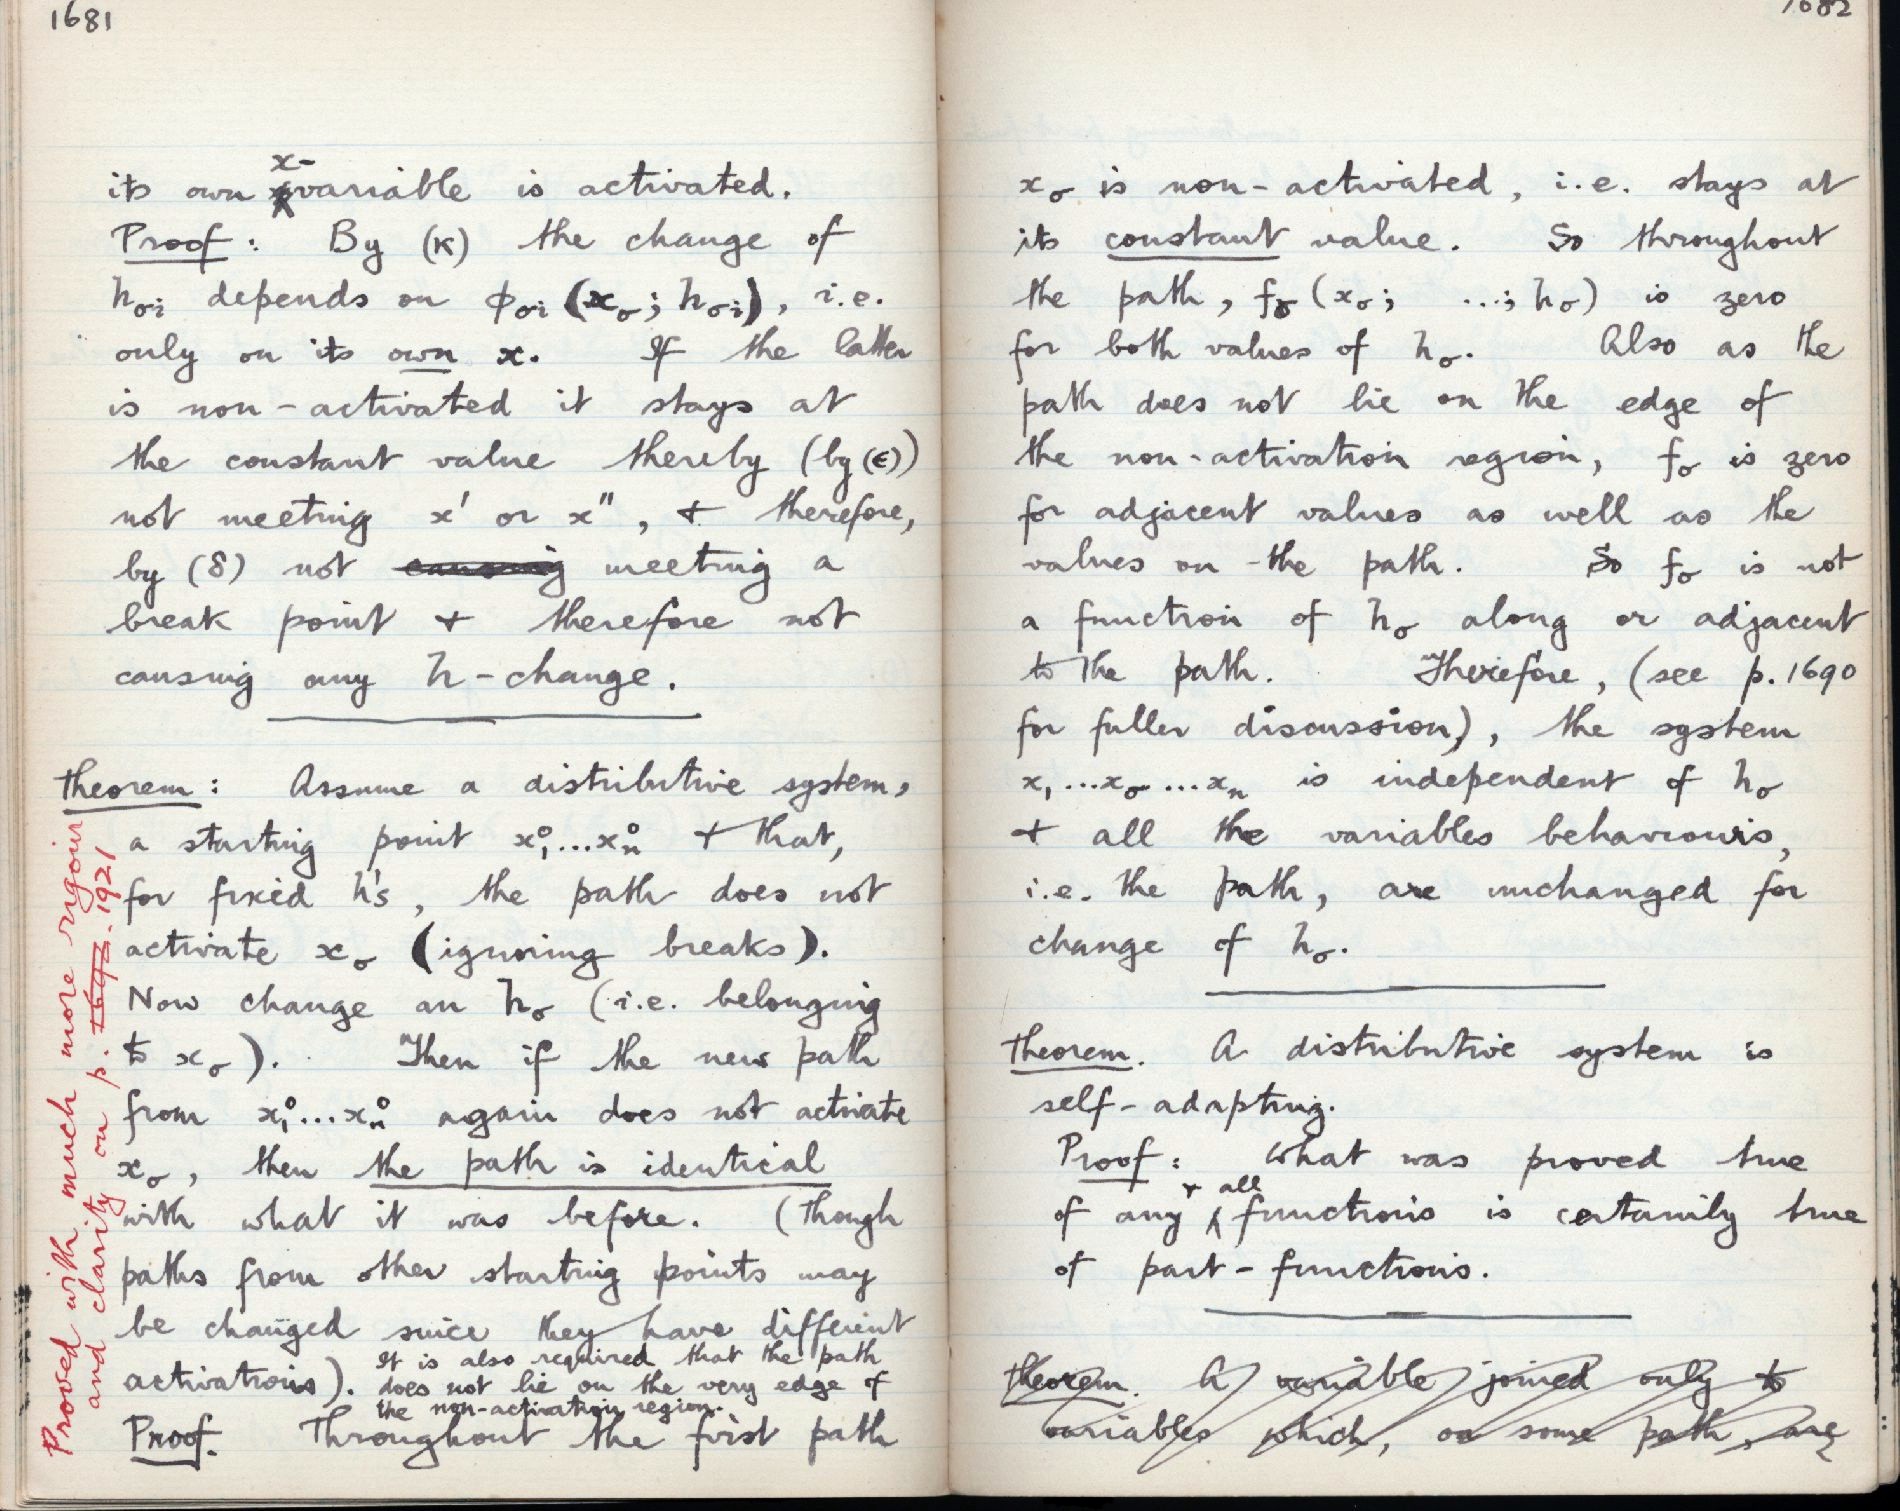 1681
its own x-variable is activated.
Proof: By (κ) the change of
hσi depends on ϕσi (xσ; hσi), i.e.
only on its own x. If the latter
is non-activated it stays at
the constant value thereby (by (ϵ))
not meeting x' or x'', + therefore,
by (δ) not causing meeting a
break point + therefore not
causing any h-change.
Theorem: Assume a distributive system,
a starting point x₁⁰...xₙ⁰ + that,
for fixed h's, the path does not
activate xσ (ignoring breaks).
Now change an hσ (i.e. belonging
to xσ). Then if the new path
from x₁⁰...xₙ⁰ again does not activate
xσ, then the path is identical
with what it was before. (Though
paths from other starting points may
be changed since they have different
activations). It is also required that the path
does not lie on the very edge of
the non-activation region.
Proof. Throughout the first path
Proved with much more rigour
and clarity on p. 1693. 1921
1682
xσ is non-activated, i.e. stays at
its constant value. So throughout
the path, fσ (xσ; ...; hσ) is zero
for both values of hσ. Also as the
path does not lie on the edge of
the non-activation region, fσ is zero
for adjacent values as well as the
values on the path. So fσ is not
a function of hσ along or adjacent
to the path. Therefore, (see p. 1690
for fuller discussion), the system
x₁...xσ...xₙ is independent of hσ
+ all the variables behaviours,
i.e. the path, are unchanged for
change of hσ.
Theorem. A distributive system is
self-adapting.
Proof: What was proved true
of any + all functions is certainly true
of part-functions.
Theorem. A variable joined only to
variables which, on some path, are